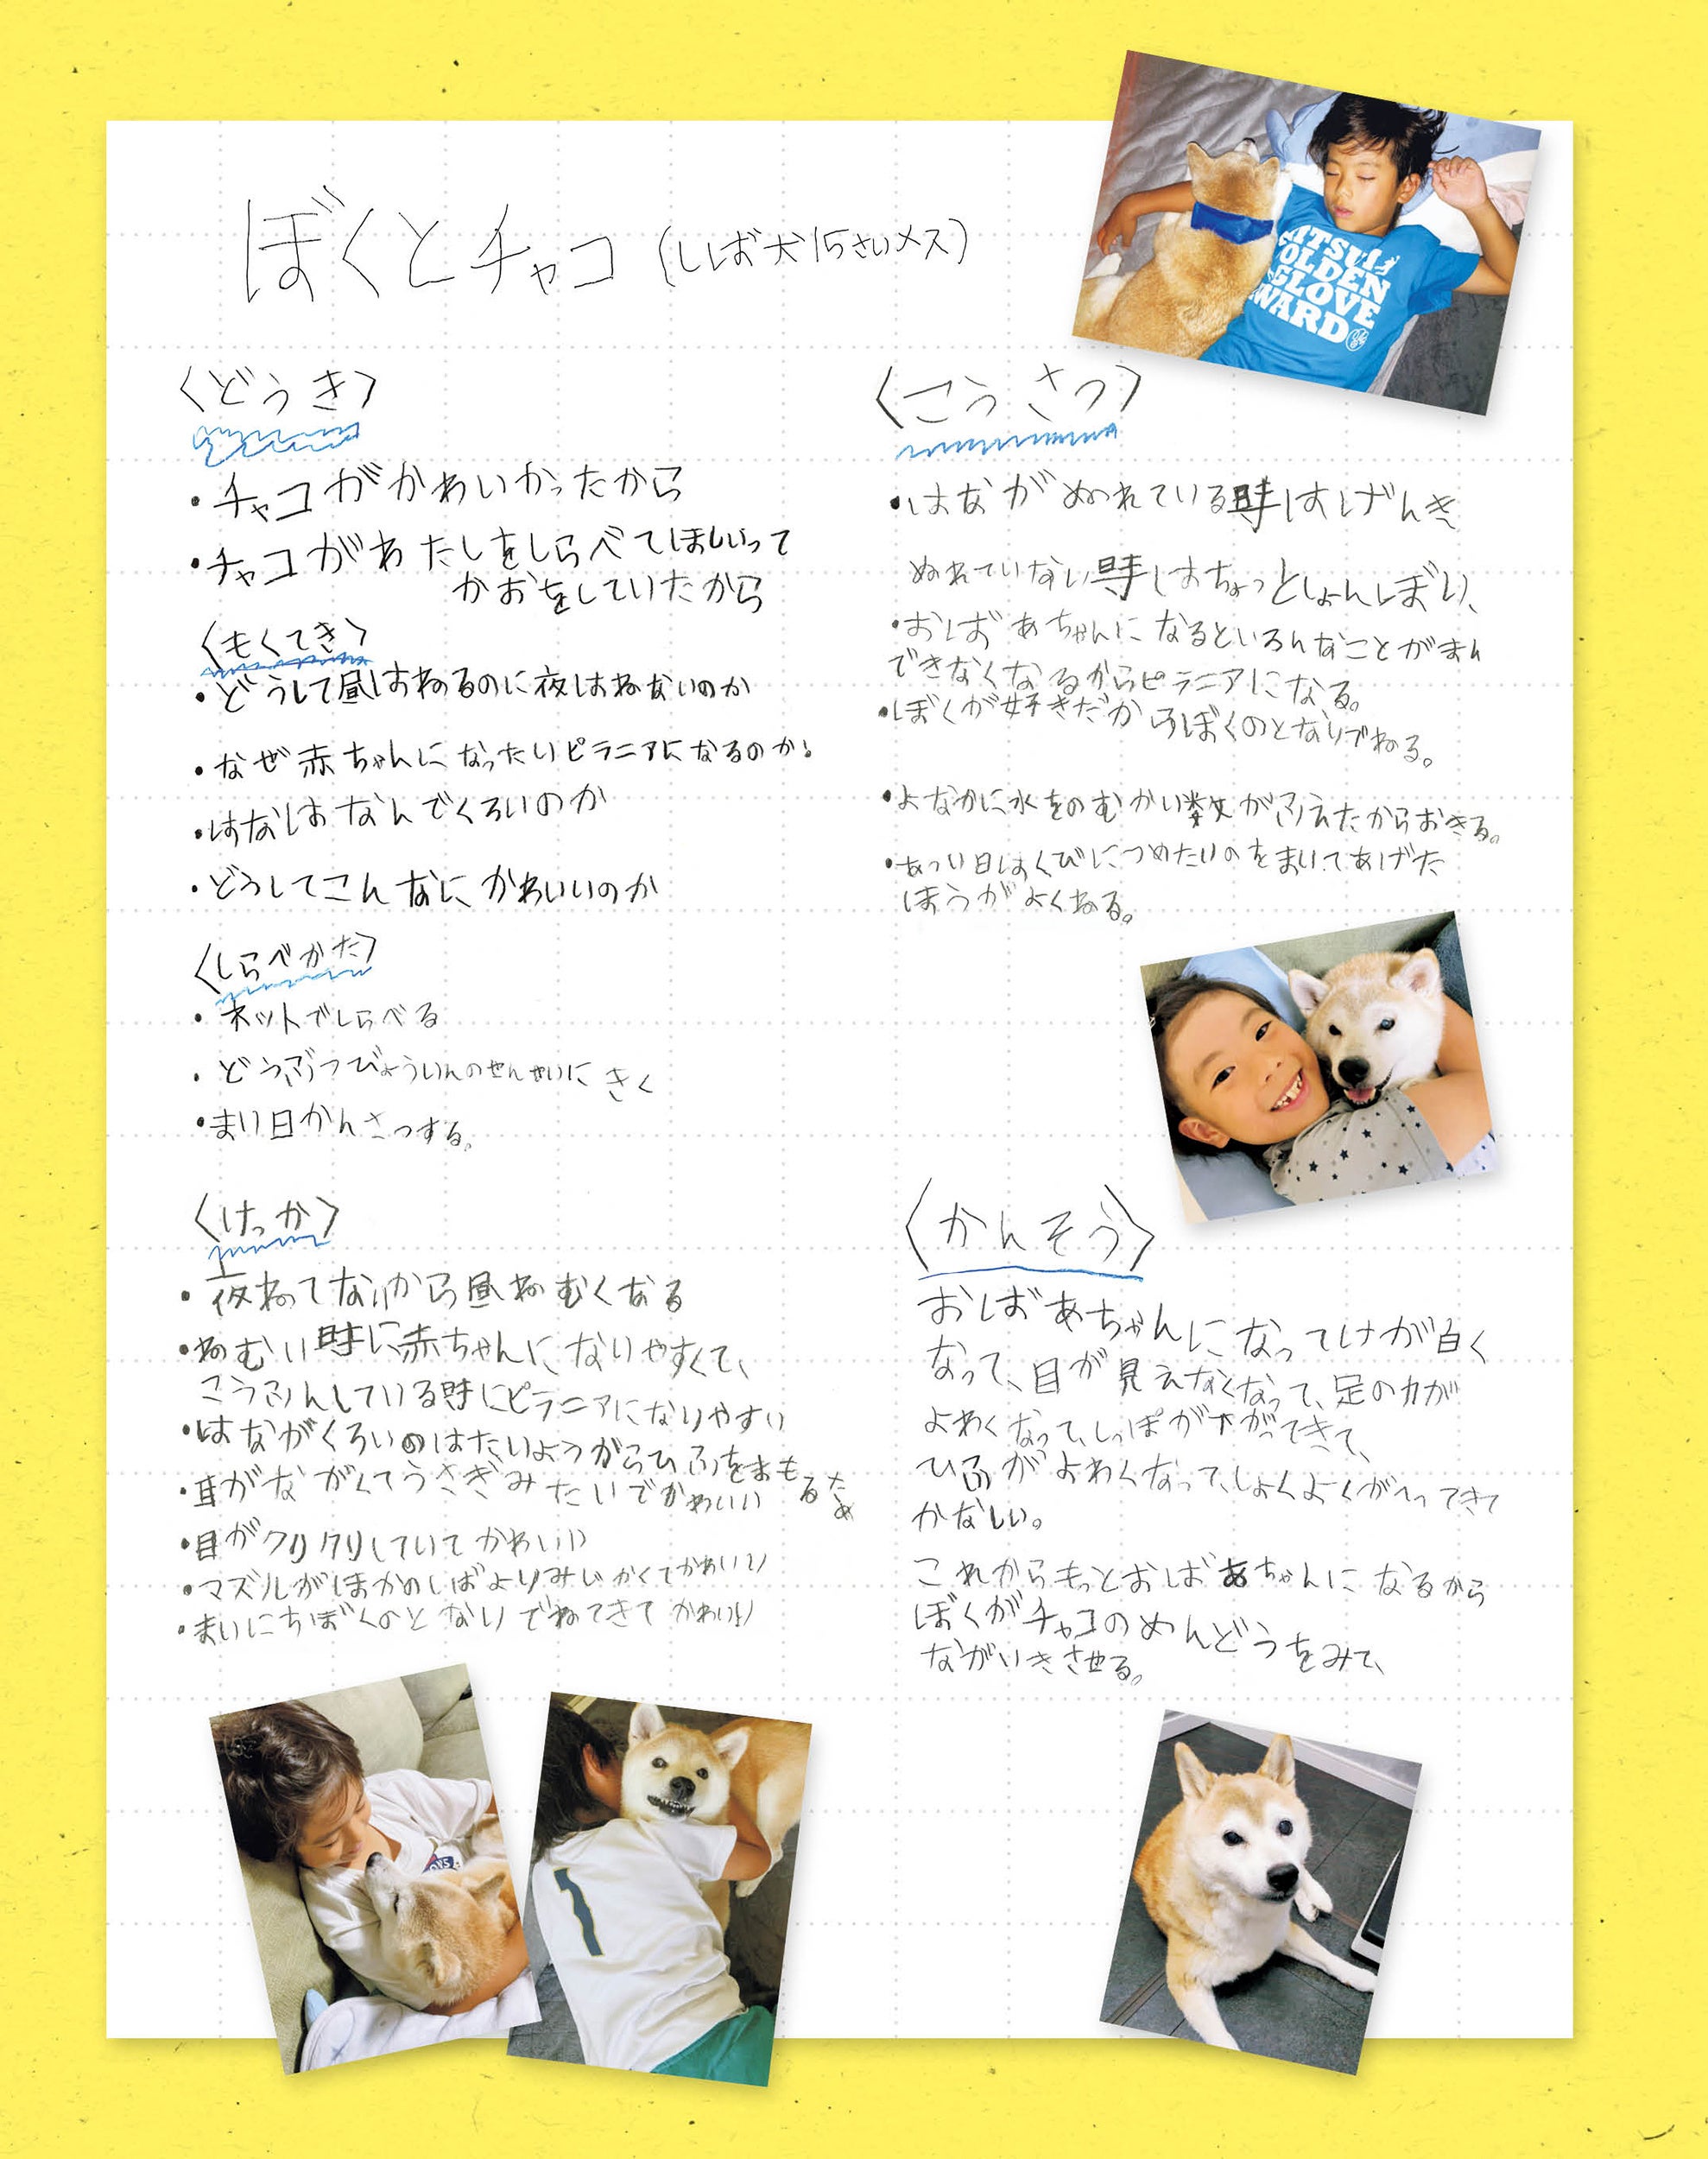 ぼくとチャコ(しば犬15さいメス)
〈どうき〉
・チャコがかわいかったから
・チャコがわたしをしらべてほしいって
かおをしていたから
〈もくてき〉
・どうして昼はねるのに夜はねないのか
・なぜ赤ちゃんになったいピラニアになるのか!
・はなはなんでくろいのか
・どうしてこんなにかわいいのか
〈しらべかた〉
・ネットでしらべる
・どうぶつびょういんのせんせいにきく
・まい日かんさつする。
〈けっか〉
・夜ねてないから昼ねむくなる
・ねむい時に赤ちゃんになりやすくて、
こうふんしている時にピラニアになりやすい
・はながくろいのはたいようからひふをまもるため
・耳がながくてうさぎみたいでかわいい
・目がクリクリしていてかわいい
・マズルがほかのしばよりみじかくてかわいい
・まいにちぼくのとなりでねてきてかわいい
〈こうさつ〉
・はながぬれている時はげんき
ぬれていない時はちょっとしょんぼり、
・おばあちゃんになるといろんなことがまん
できなくなるからピラニアになる。
・ぼくが好きだからぼくのとなりでねる。
・よなかに水をのむかい数がふえたからおきる。
・あつい日はくびにつめたいのをまいてあげた
ほうがよくねる。
〈かんそう〉
おばあちゃんになってけが白く
なって、目が見えなくなって、足の力が
よわくなって、しっぽが下がってきて、
ひふがよわくなって、しょくよくがへってきて
かなしい。
これからもっとおばあちゃんになるから
ぼくがチャコのめんどうをみて、
ながいきさせる。
MITSUI
GOLDEN
GLOVE
AWARD
1